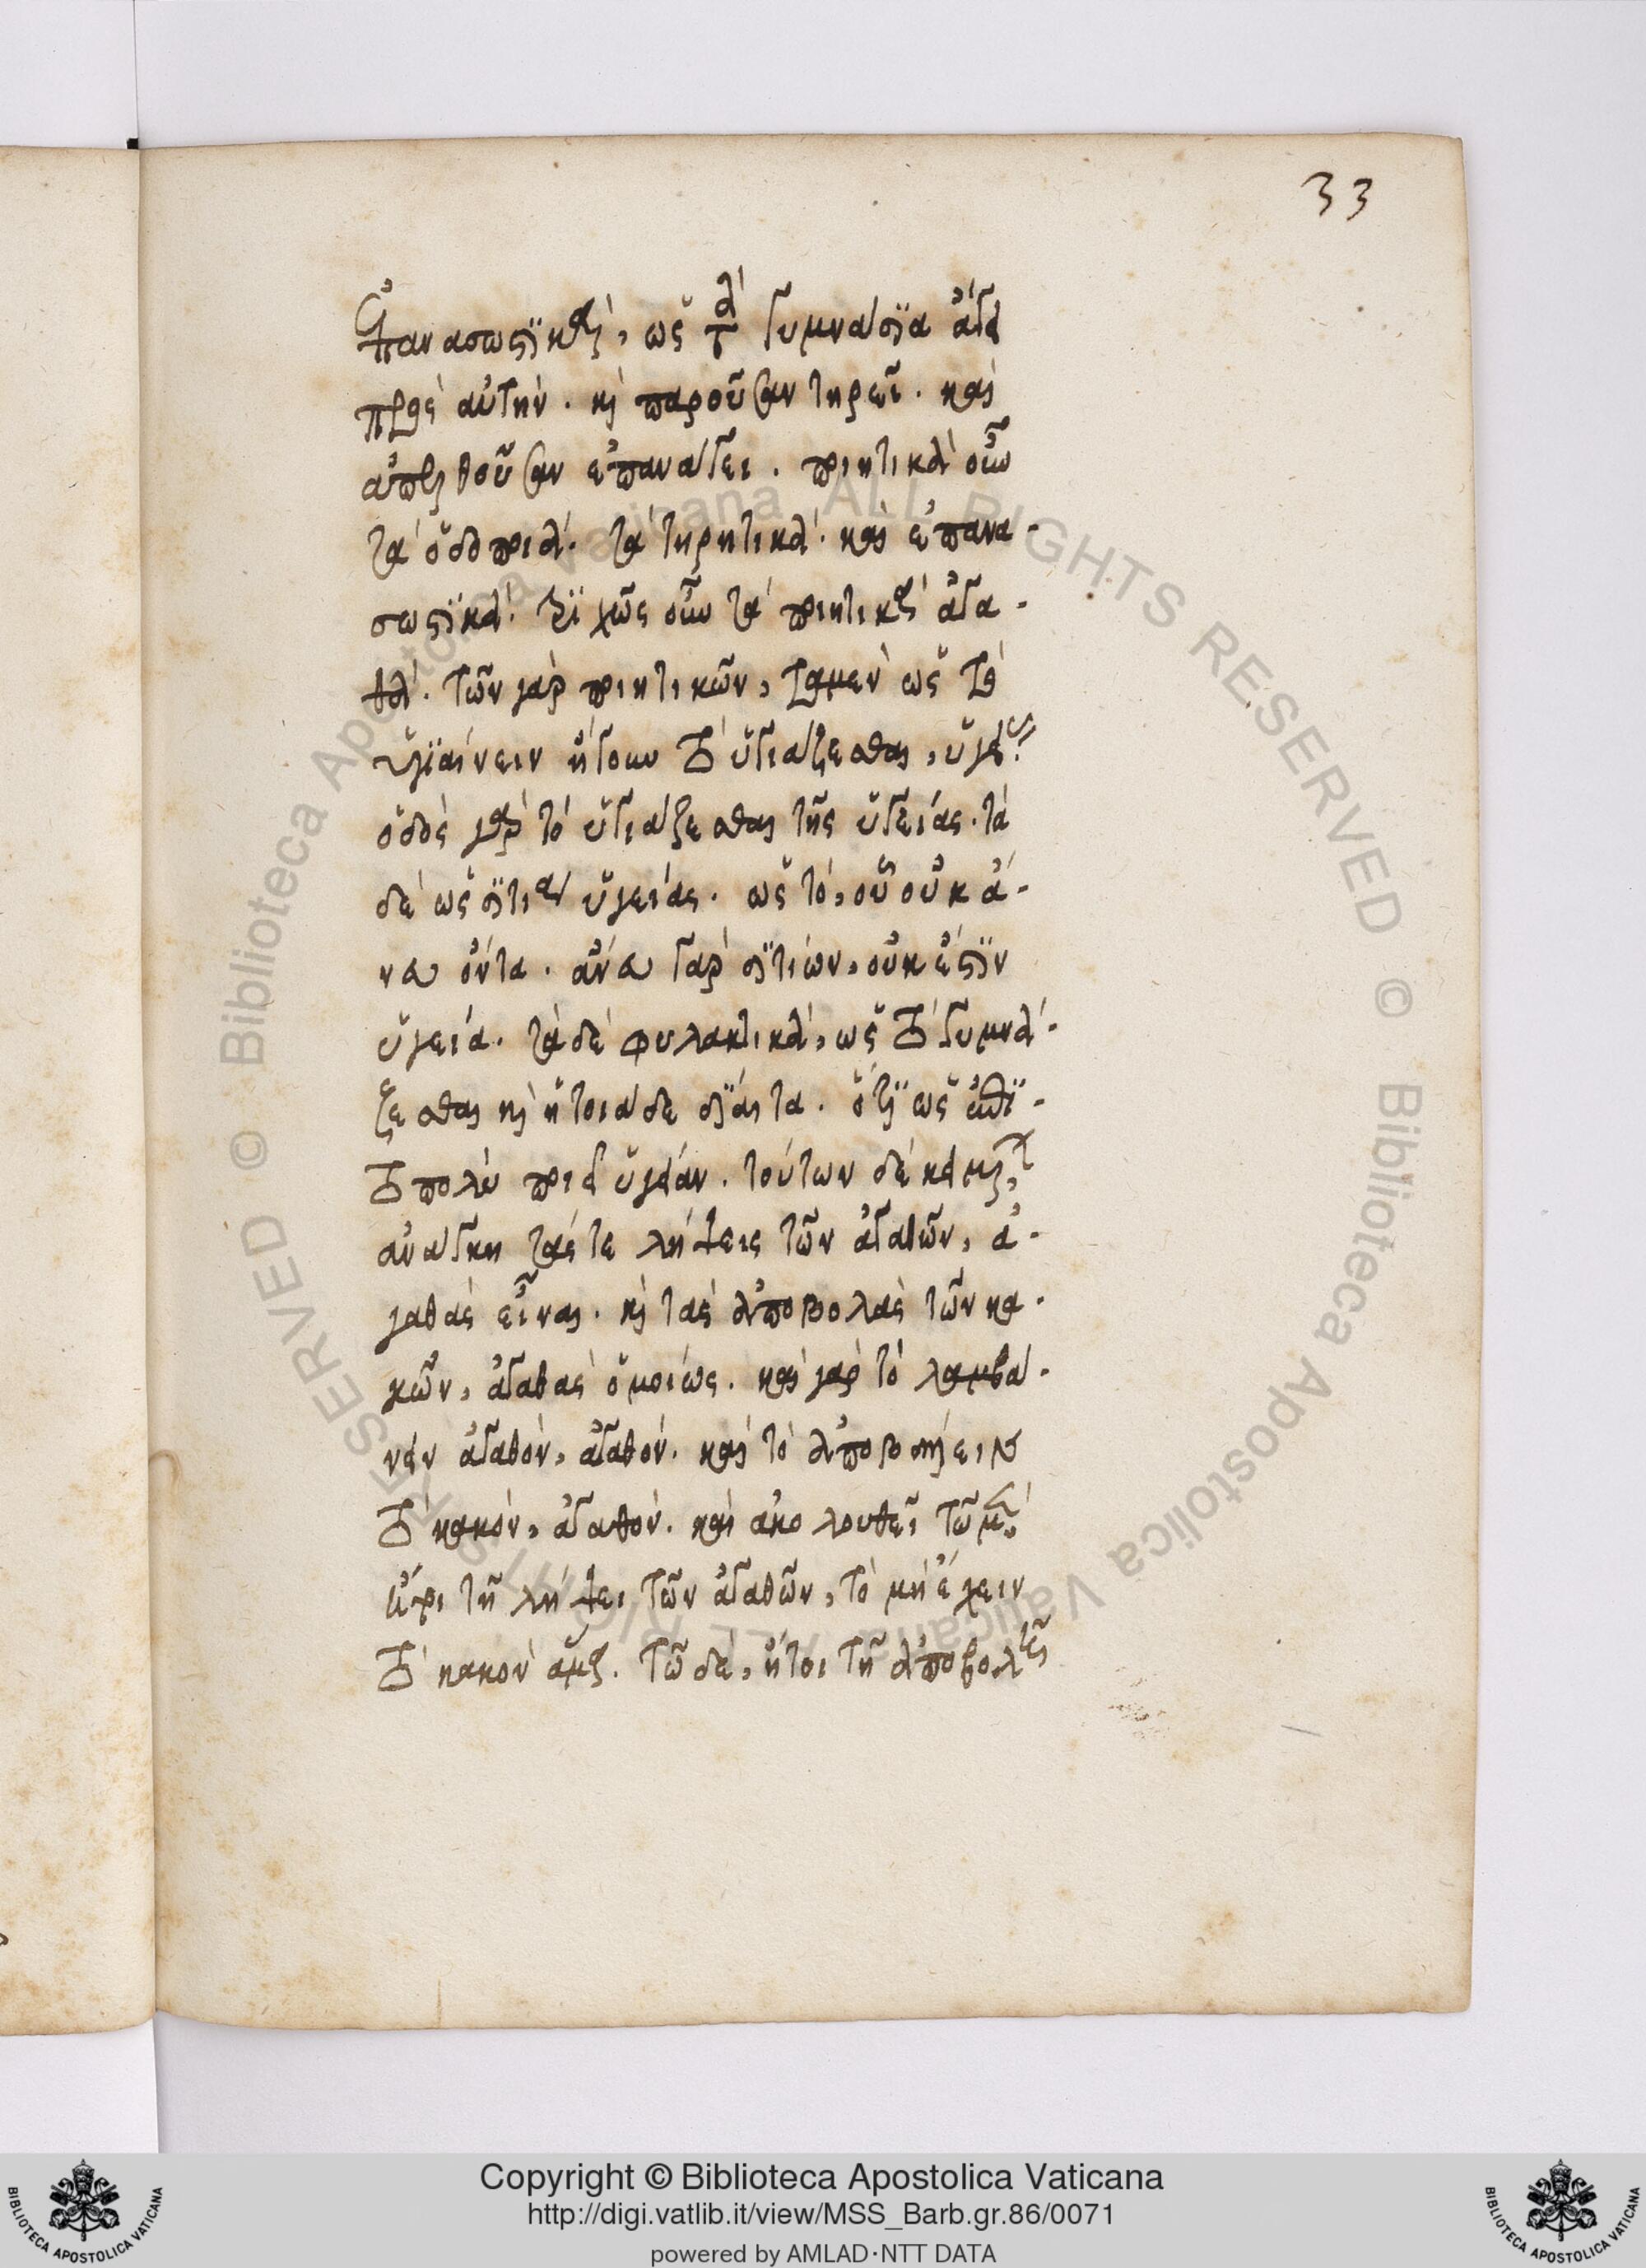 33
ἐπανασωστικὰ, ὡς τὰ γυμνάσια ἄγει
πρὸς αὐτήν. καὶ παροῦσαν τηρεῖ. καὶ
ἀπελθοῦσαν ἐπανάγει. ποιητικὰ οὖν
τὰ ὁδοποιά. τὰ τηρητικά. καὶ ἐπανα-
σωστικά. τριχῶς οὖν τὰ ποιητικὰ ἀγα-
θά. τῶν γὰρ ποιητικῶν, τὰ μὲν ὡς τὸ
ὑγιαίνειν ἤγουν τὸ ὑγιάζεσθαι, ὑγείας.
ὁδὸς γὰρ τὸ ὑγιάζεσθαι τῆς ὑγείας. τὰ
δὲ ὡς σιτία ὑγείας. ὡς τὸ, οὗ οὐκ ἄ-
νευ ὄντα. ἄνευ γὰρ σιτίων, οὐκ ἔστιν
ὑγεία. τὰ δὲ φυλακτικὰ, ὡς τὸ γυμνά-
ζεσθαι καὶ ἡ τοιάδε δίαιτα. ὅτι ὡς ἐπὶ
τὸ πολὺ ποιεῖ ὑγείαν. τούτων δὲ κειμένων,
ἀνάγκη τάς τε λήψεις τῶν ἀγαθῶν, ἀ-
γαθὰς εἶναι. καὶ τὰς ἀποβολὰς τῶν κα-
κῶν, ἀγαθὰς ὁμοίως. καὶ γὰρ τὸ λαμβά-
νειν ἀγαθὸν, ἀγαθόν. καὶ τὸ ἀποβάλλειν
τὸ κακὸν, ἀγαθόν. καὶ ἀκολουθεῖ τῶ μὲν
ἤτοι τῇ λήψει τῶν ἀγαθῶν, τὸ μὴ ἔχειν
τὸ κακὸν ἅμα. τῶ δὲ, ἤτοι τῇ ἀποβολῇ
Copyright © Biblioteca Apostolica Vaticana
http://digi.vatlib.it/view/MSS_Barb.gr.86/0071
powered by AMLAD·NTT DATA